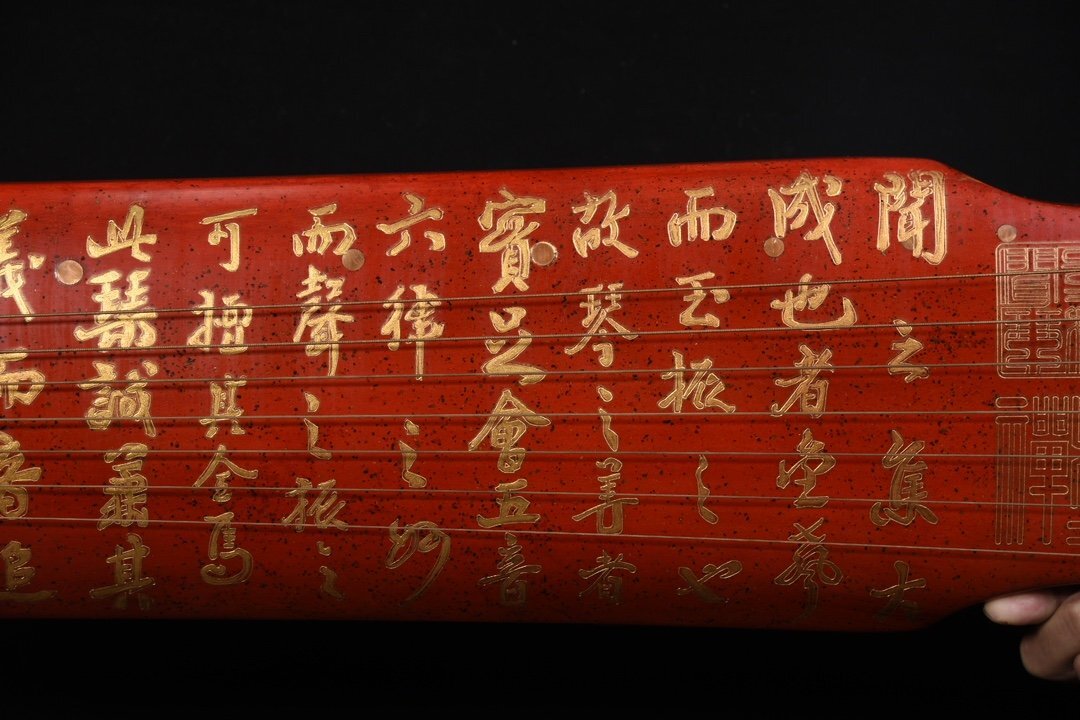 聞之集大
成也者金聲
而玉振之也
故琴之善者
實足會五音
六律之妙
而聲之振之
可其全焉
此琴誠其
義而音追